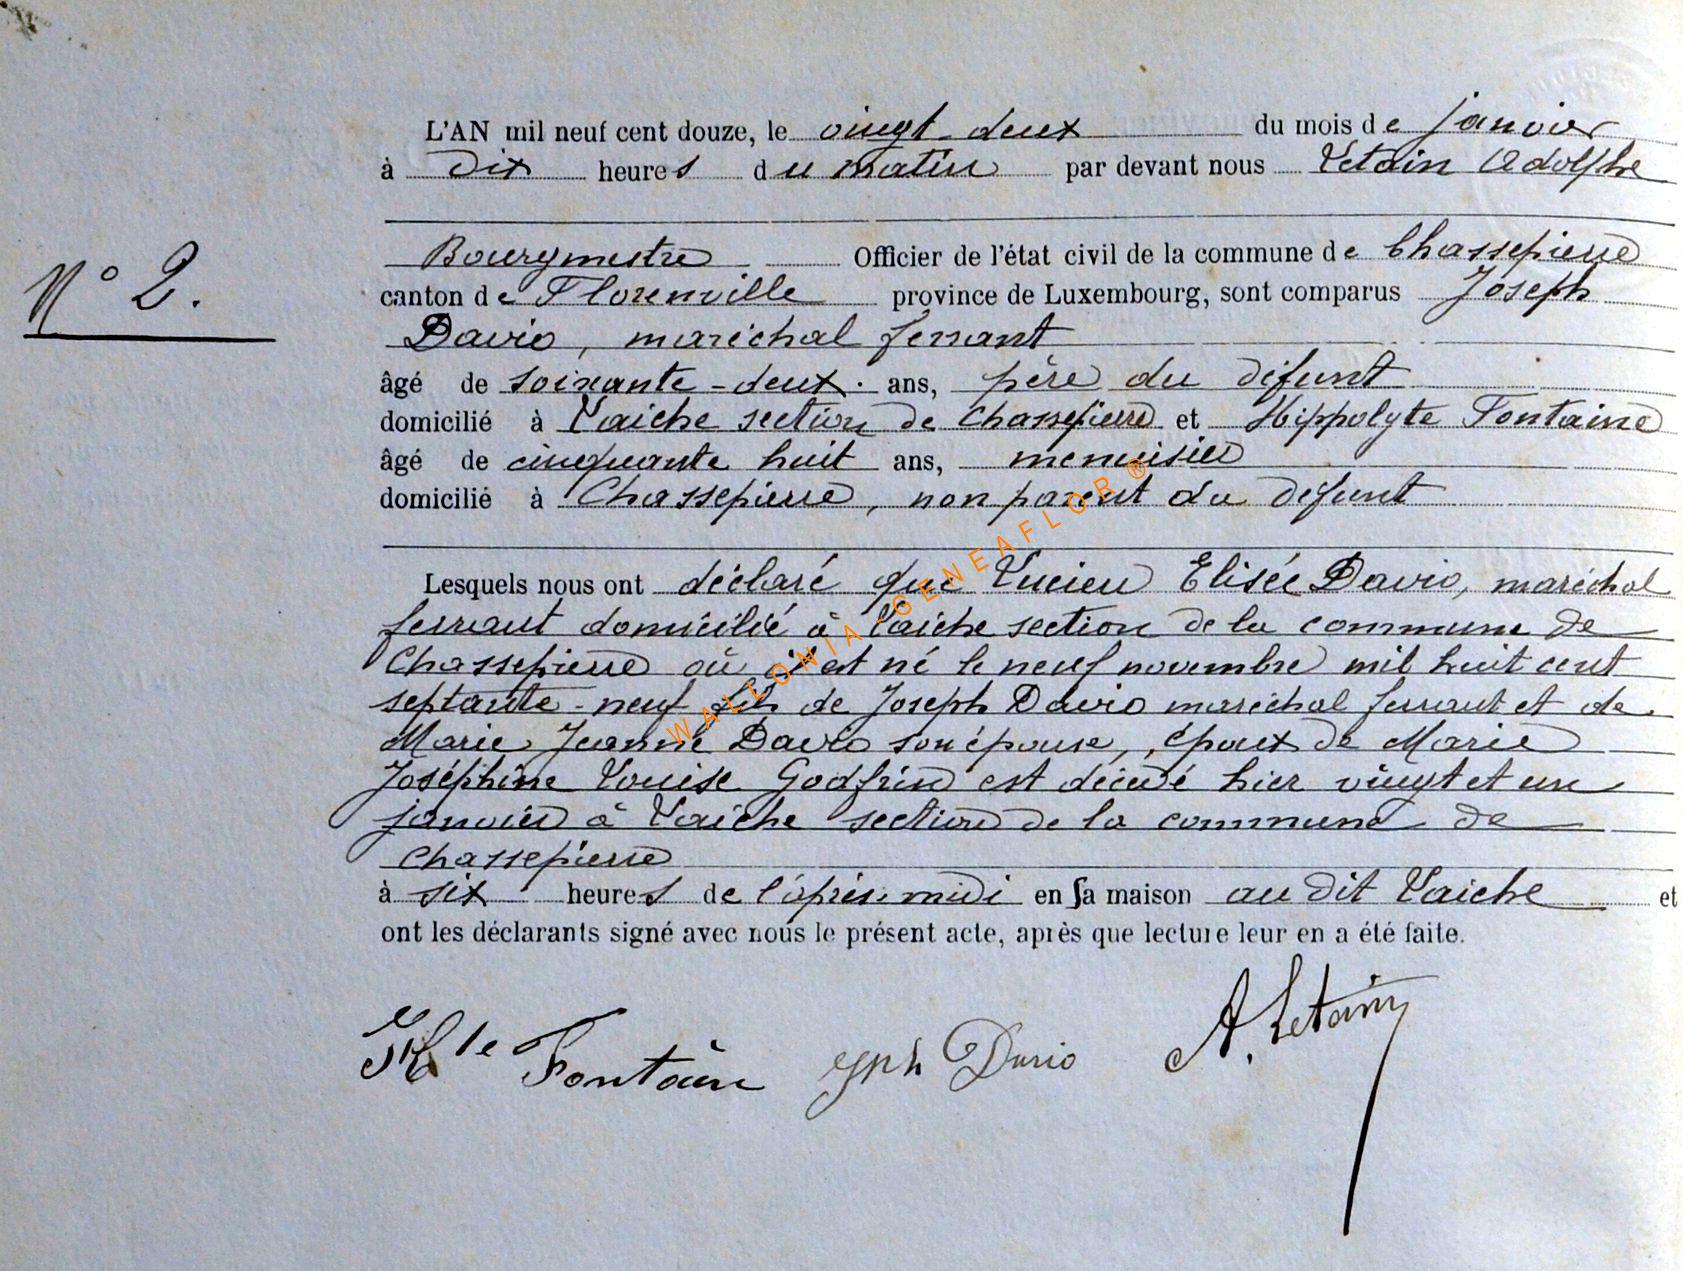 L'AN mil neuf cent douze, le vingt-deux du mois de janvier
à dix heures du matin par devant nous Letain Adolphe
Bourgmestre Officier de l'état civil de la commune de Chassepierre
N° 2.
canton de Florenville province de Luxembourg, sont comparus Joseph
Davio, maréchal ferrant
âgé de soixante-deux. ans, père du défunt
domicilié à Laiche section de Chassepierre et Hippolyte Fontaine
âgé de cinquante huit ans, menuisier
domicilié à Chassepierre, non parent du défunt
Lesquels nous ont déclaré que Lucien Elisée Davio, maréchal
ferrant domicilié à Laiche section de la commune de
Chassepierre où il est né le neuf novembre mil huit cent
septante-neuf fils de Joseph Davio maréchal ferrant et de
Marie Jeanne Davio son épouse, époux de Marie
Joséphine Louise Godfrin est décédé hier vingt et un
janvier à Laiche section de la commune de
Chassepierre
à six heures de l'après-midi en sa maison au dit Laiche et
ont les déclarants signé avec nous le présent acte, après que lecture leur en a été faite.
Hte Fontaine Jph Davio A. Letain
WALLONIA-GENEAFLOR®